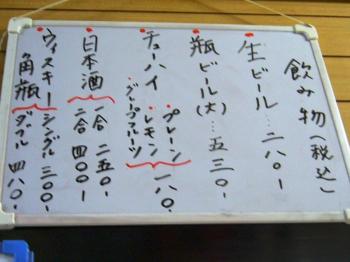 飲み物(税込)
生ビール…二八〇-
瓶ビール(大)…五三〇-
チューハイ
・プレーン
・レモン
・グレープフルーツ
一八〇-
日本酒
一合 二五〇-
二合 四〇〇-
ウィスキー
角瓶
シングル 三〇〇-
ダブル 四八〇-